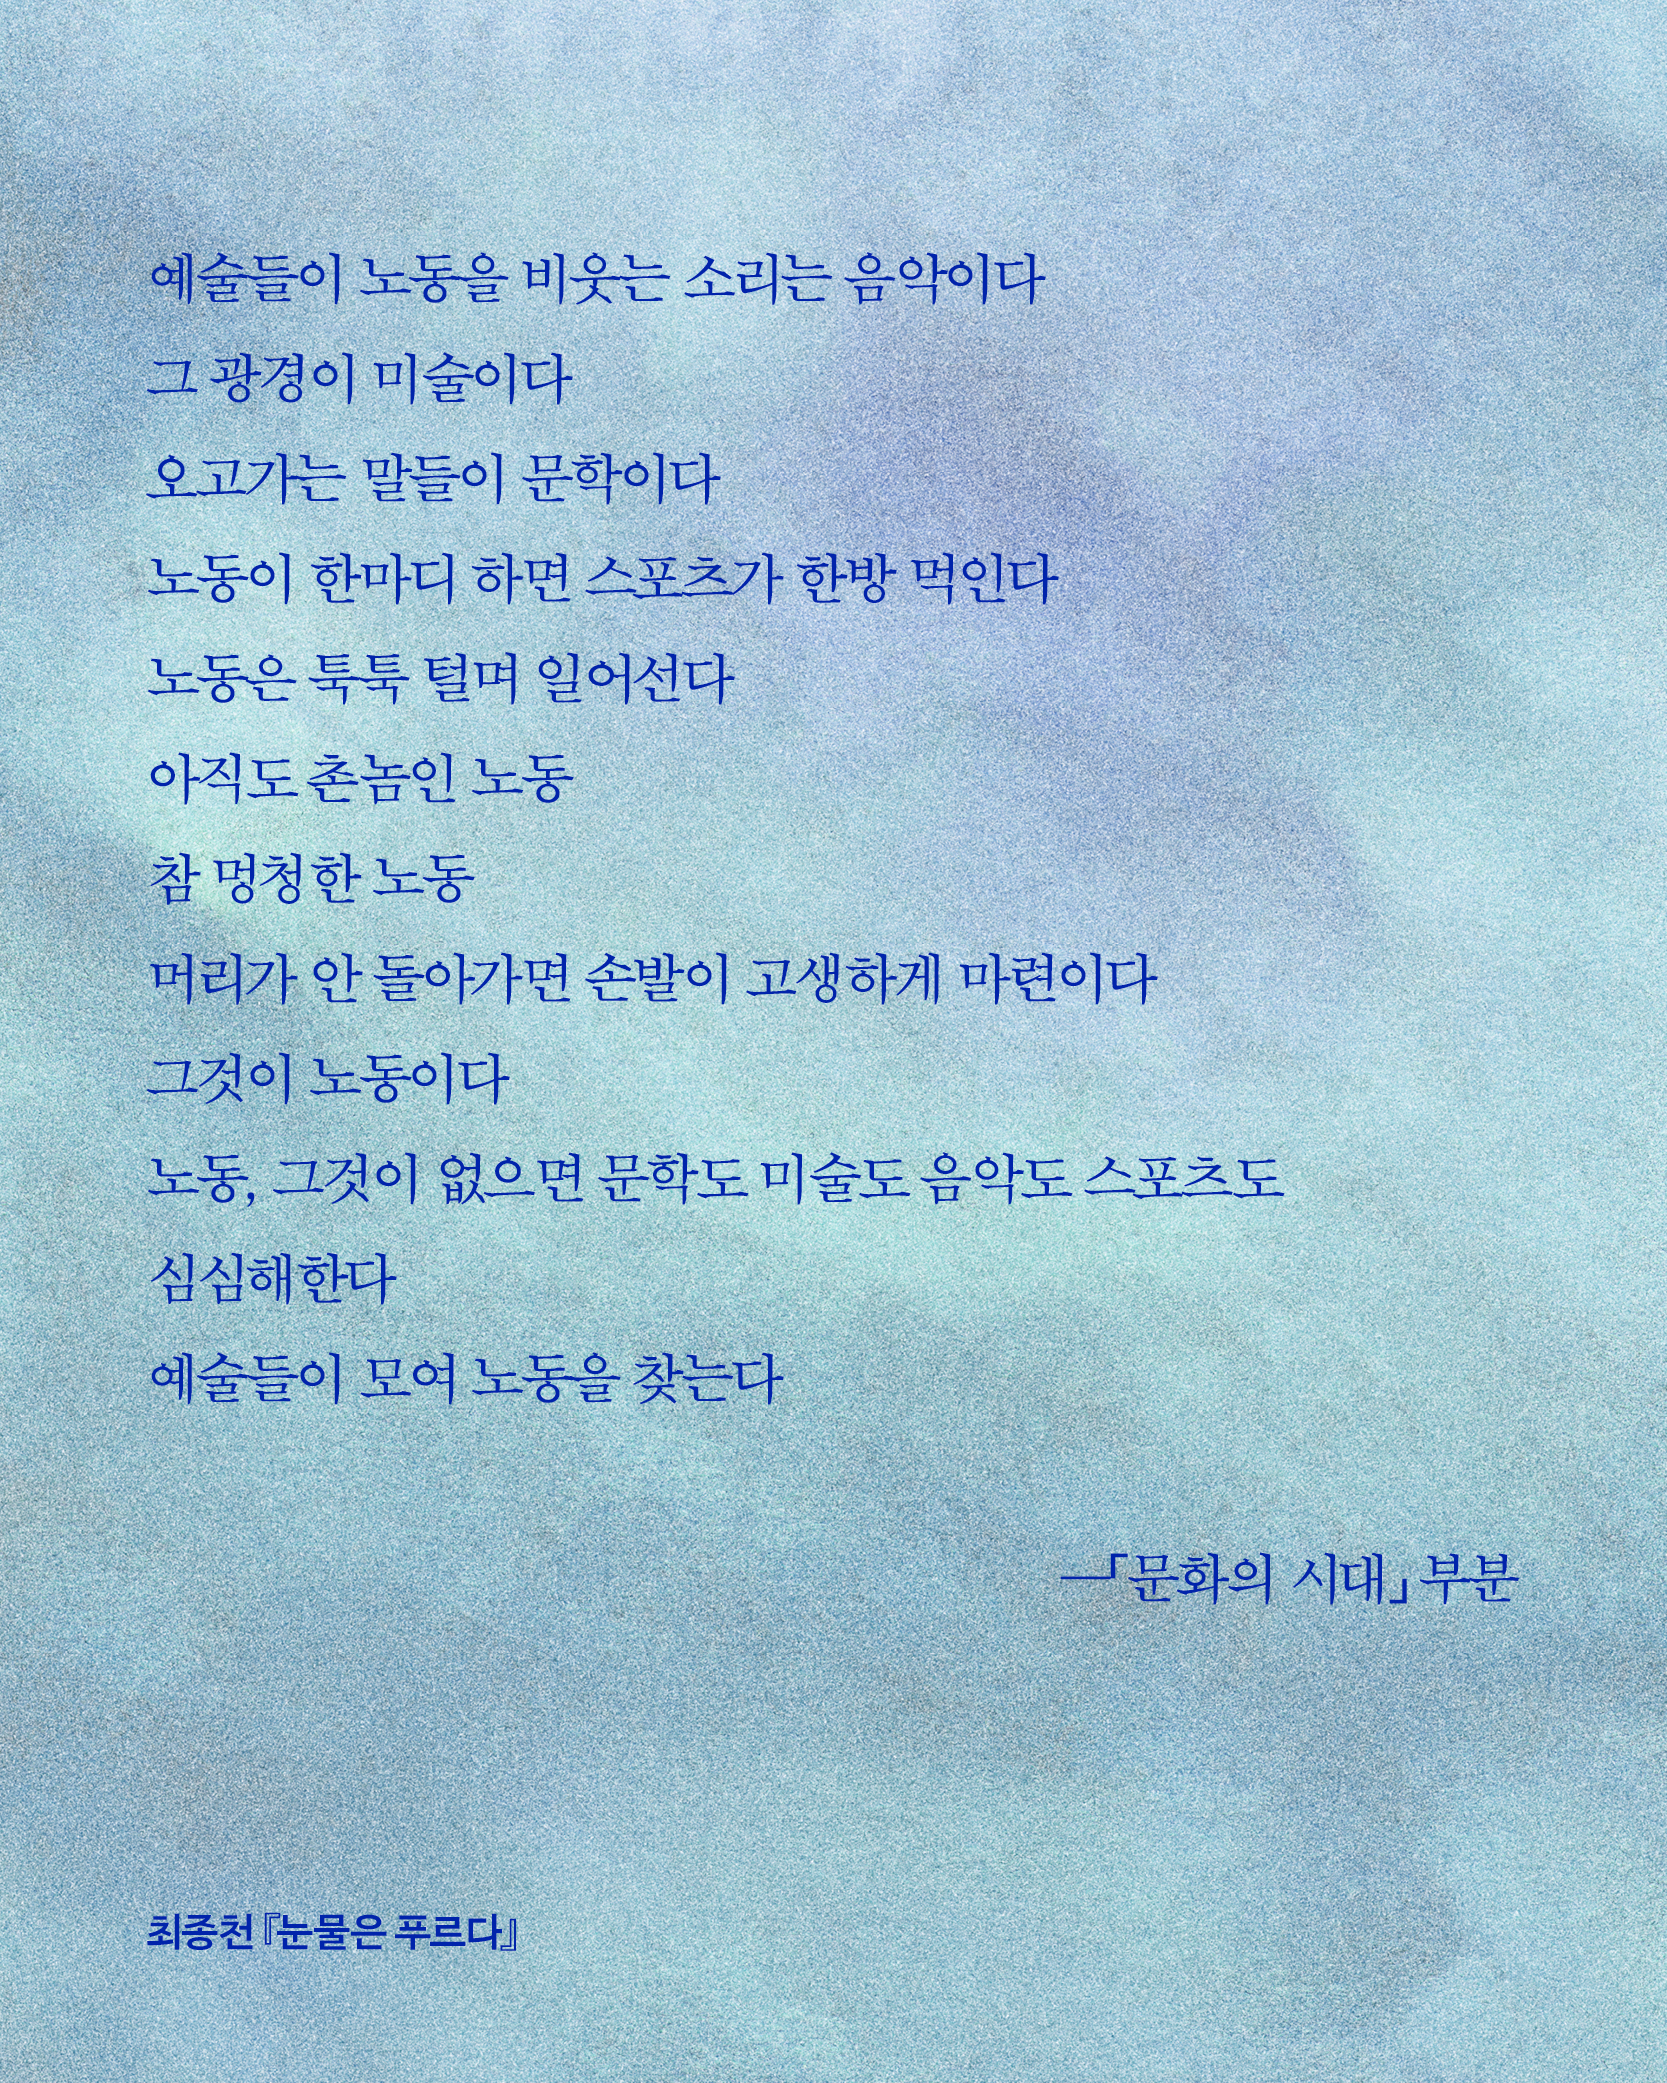 예술들이 노동을 비웃는 소리는 음악이다
그 광경이 미술이다
오고가는 말들이 문학이다
노동이 한마디 하면 스포츠가 한방 먹인다
노동은 툭툭 털며 일어선다
아직도 촌놈인 노동
참 멍청한 노동
머리가 안 돌아가면 손발이 고생하게 마련이다
그것이 노동이다
노동, 그것이 없으면 문학도 미술도 음악도 스포츠도
심심해한다
예술들이 모여 노동을 찾는다
―「문화의 시대」 부분
최종천 『눈물은 푸르다』